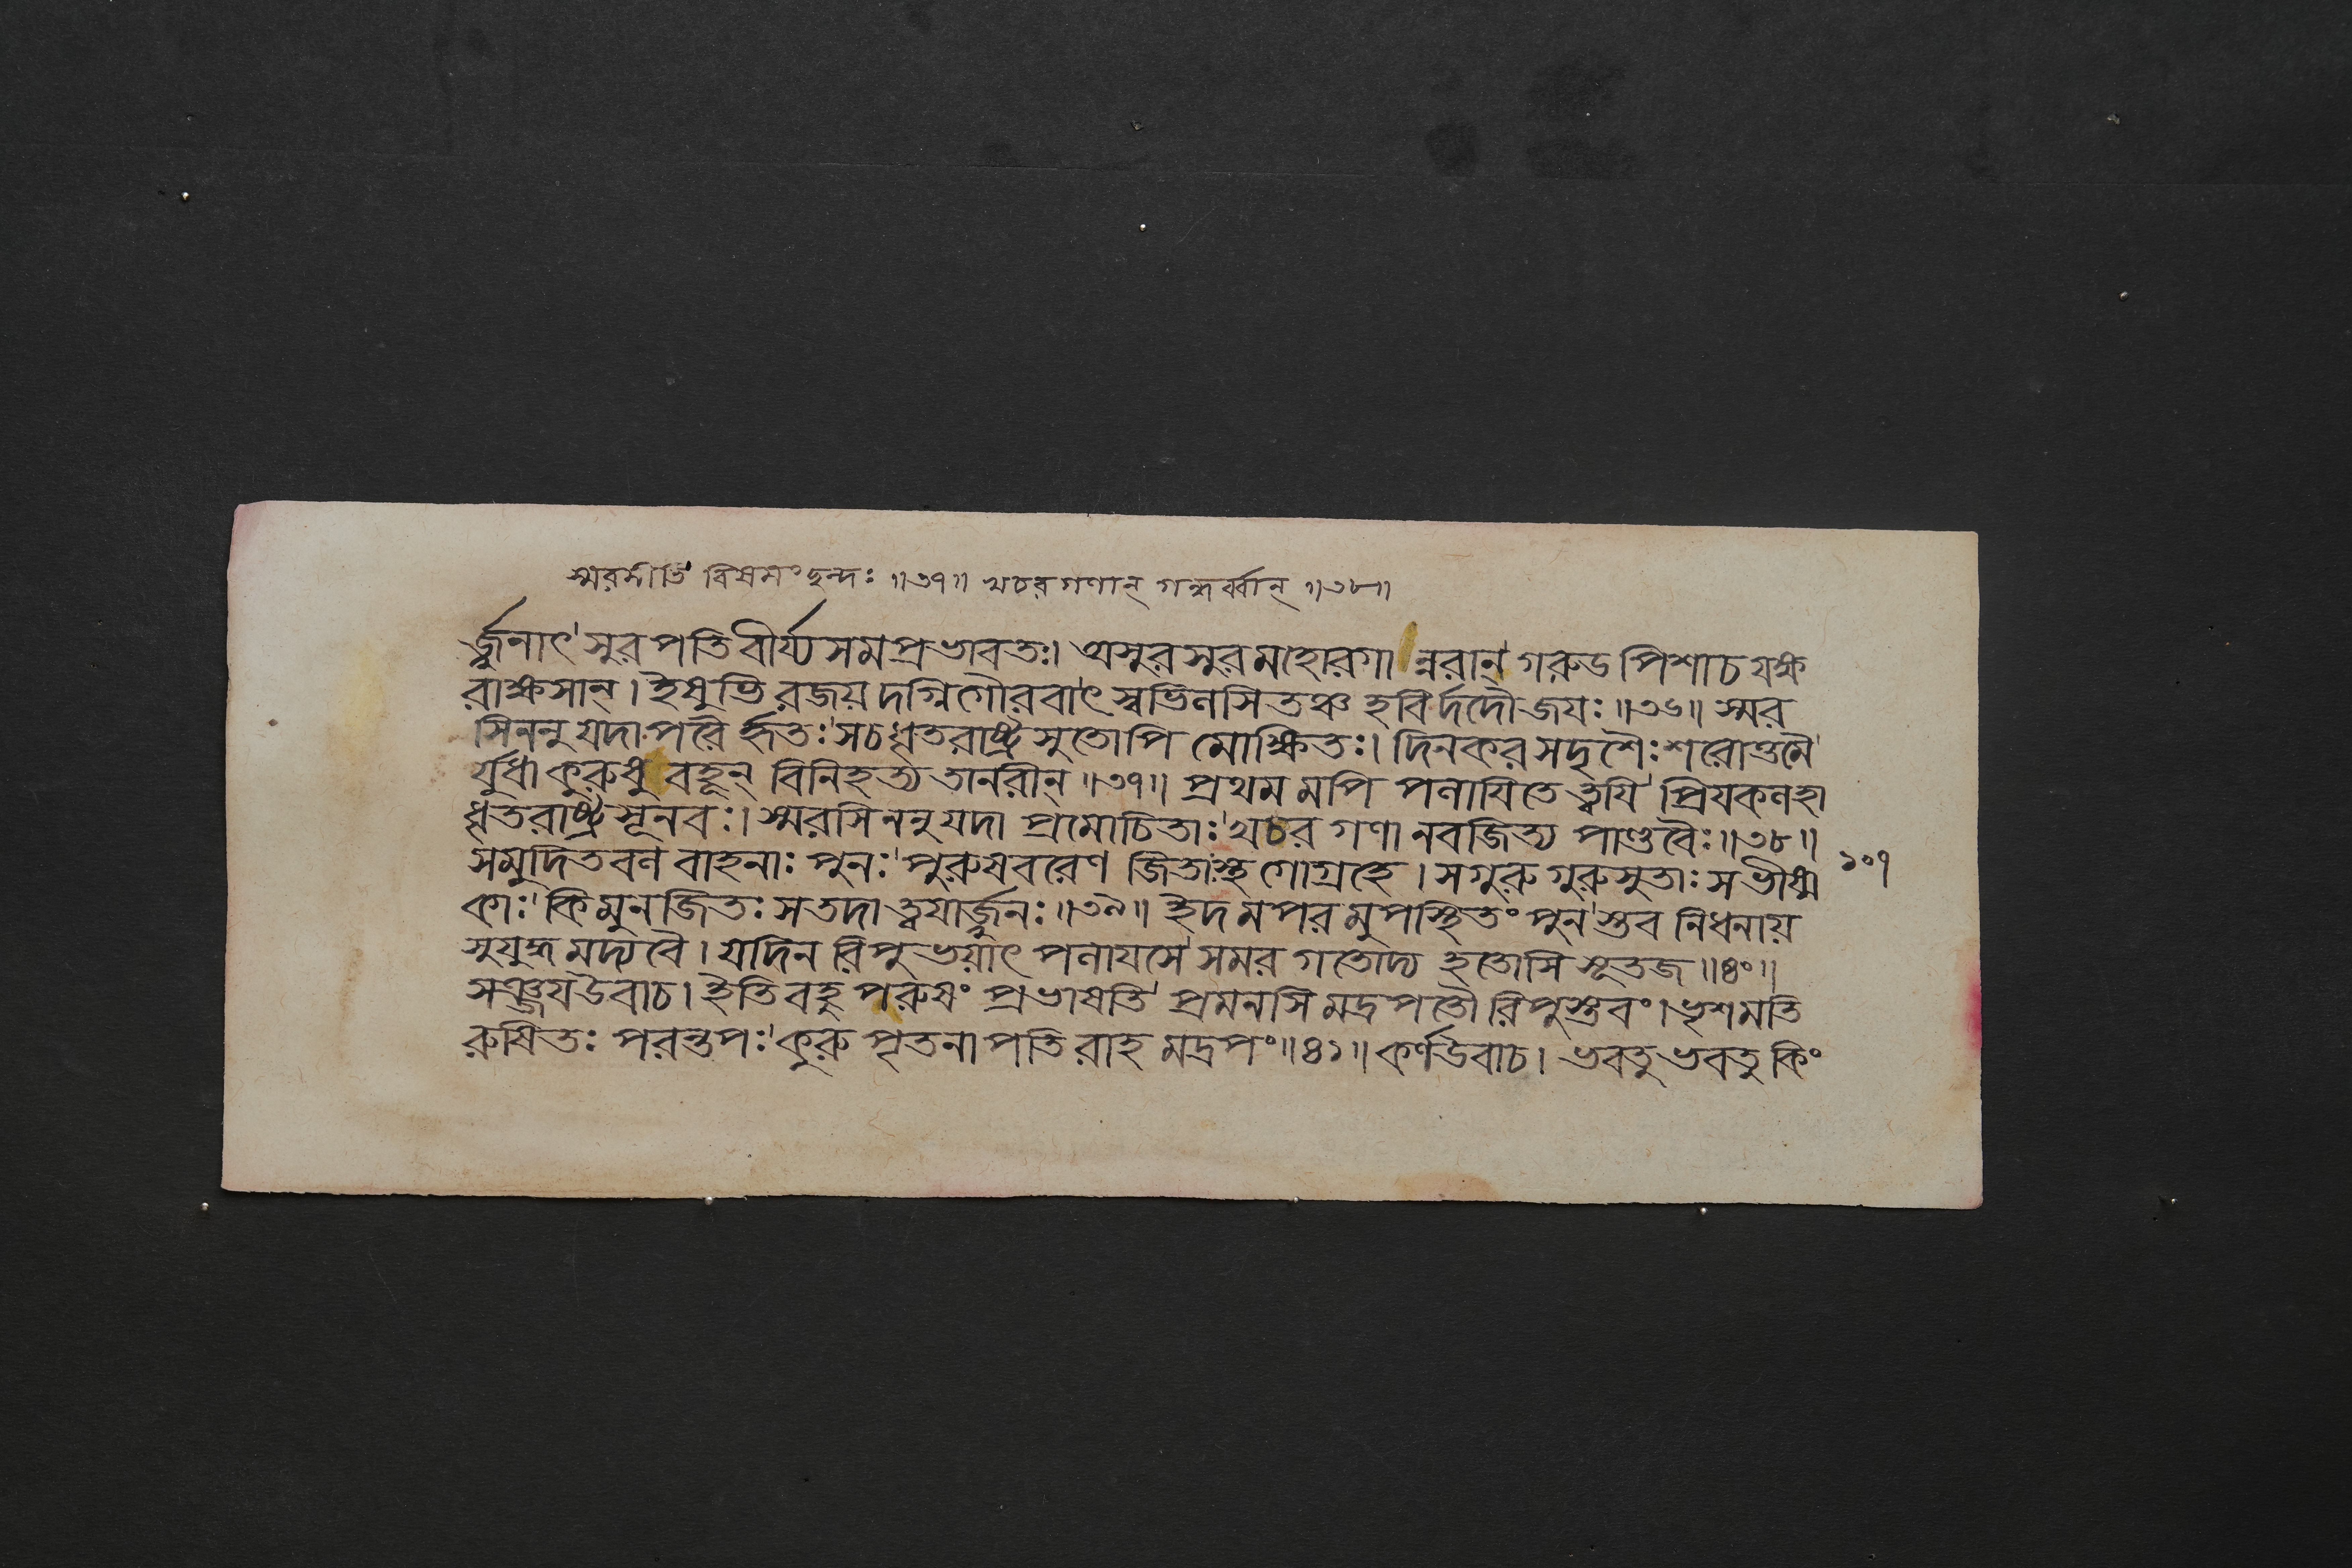 স্মরসীতি বিষমং ছন্দঃ ॥৩৭॥ খচরগণান্ গন্ধর্ব্বান্ ॥৩৮॥
র্জ্জুনাৎ' সুরপতিবীর্য্যসমপ্রভাবতঃ। অসুরসুরমহোরগান্নরান্' গরুডপিশাচযক্ষ
রাক্ষসান্। ইষুভিরজয়দগ্নিগৌরবাৎ' স্বভিলসিতঞ্চ হবির্দদৌজয়ঃ ॥৩৬॥ স্মর
সিননু যদা পরৈর্হৃতঃ' সচধৃতরাষ্ট্রসুতোপি মোক্ষিতঃ। দিনকরসদৃশৈঃ শরোত্তমৈ'
র্যুধা কুরুষু বহূন্ বিনিহত্য তানরীন্ ॥৩৭॥ প্রথমমপি পলায়িতে ত্বয়ি' প্রিয়কলহা
ধৃতরাষ্ট্রসূনবঃ। স্মরসিননু যদা প্রমোচিতাঃ' খচরগণানবজিত্য পাণ্ডবৈঃ ॥৩৮॥
সমুদিতবলবাহনাঃ পুনঃ' পুরুষবরেণ জিতাস্থ গোগ্রহে। সগুরুগুরুসুতাঃ সভীষ্ম
কাঃ' কিমুনজিতঃ সতদা ত্বয়ার্জ্জুনঃ ॥৩৯॥ ইদমপরমুপস্থিতং পুন' স্তব নিধনায়
সুযুদ্ধমদ্যবৈ। যদিন রিপুভয়াৎ পলায়সে' সমরগতোদ্য হতোসি সূতজ ॥৪০॥
সঞ্জয়উবাচ। ইতি বহু পরুষং প্রভাষতি' প্রমনসি মদ্রপতৌ রিপুস্তবং। ভৃশমতি
রুষিতঃ পরন্তপঃ' কুরুপৃতনাপতিরাহ মদ্রপং ॥৪১॥ কর্ণউবাচ। ভবতু ভবতু কিং
১০৭